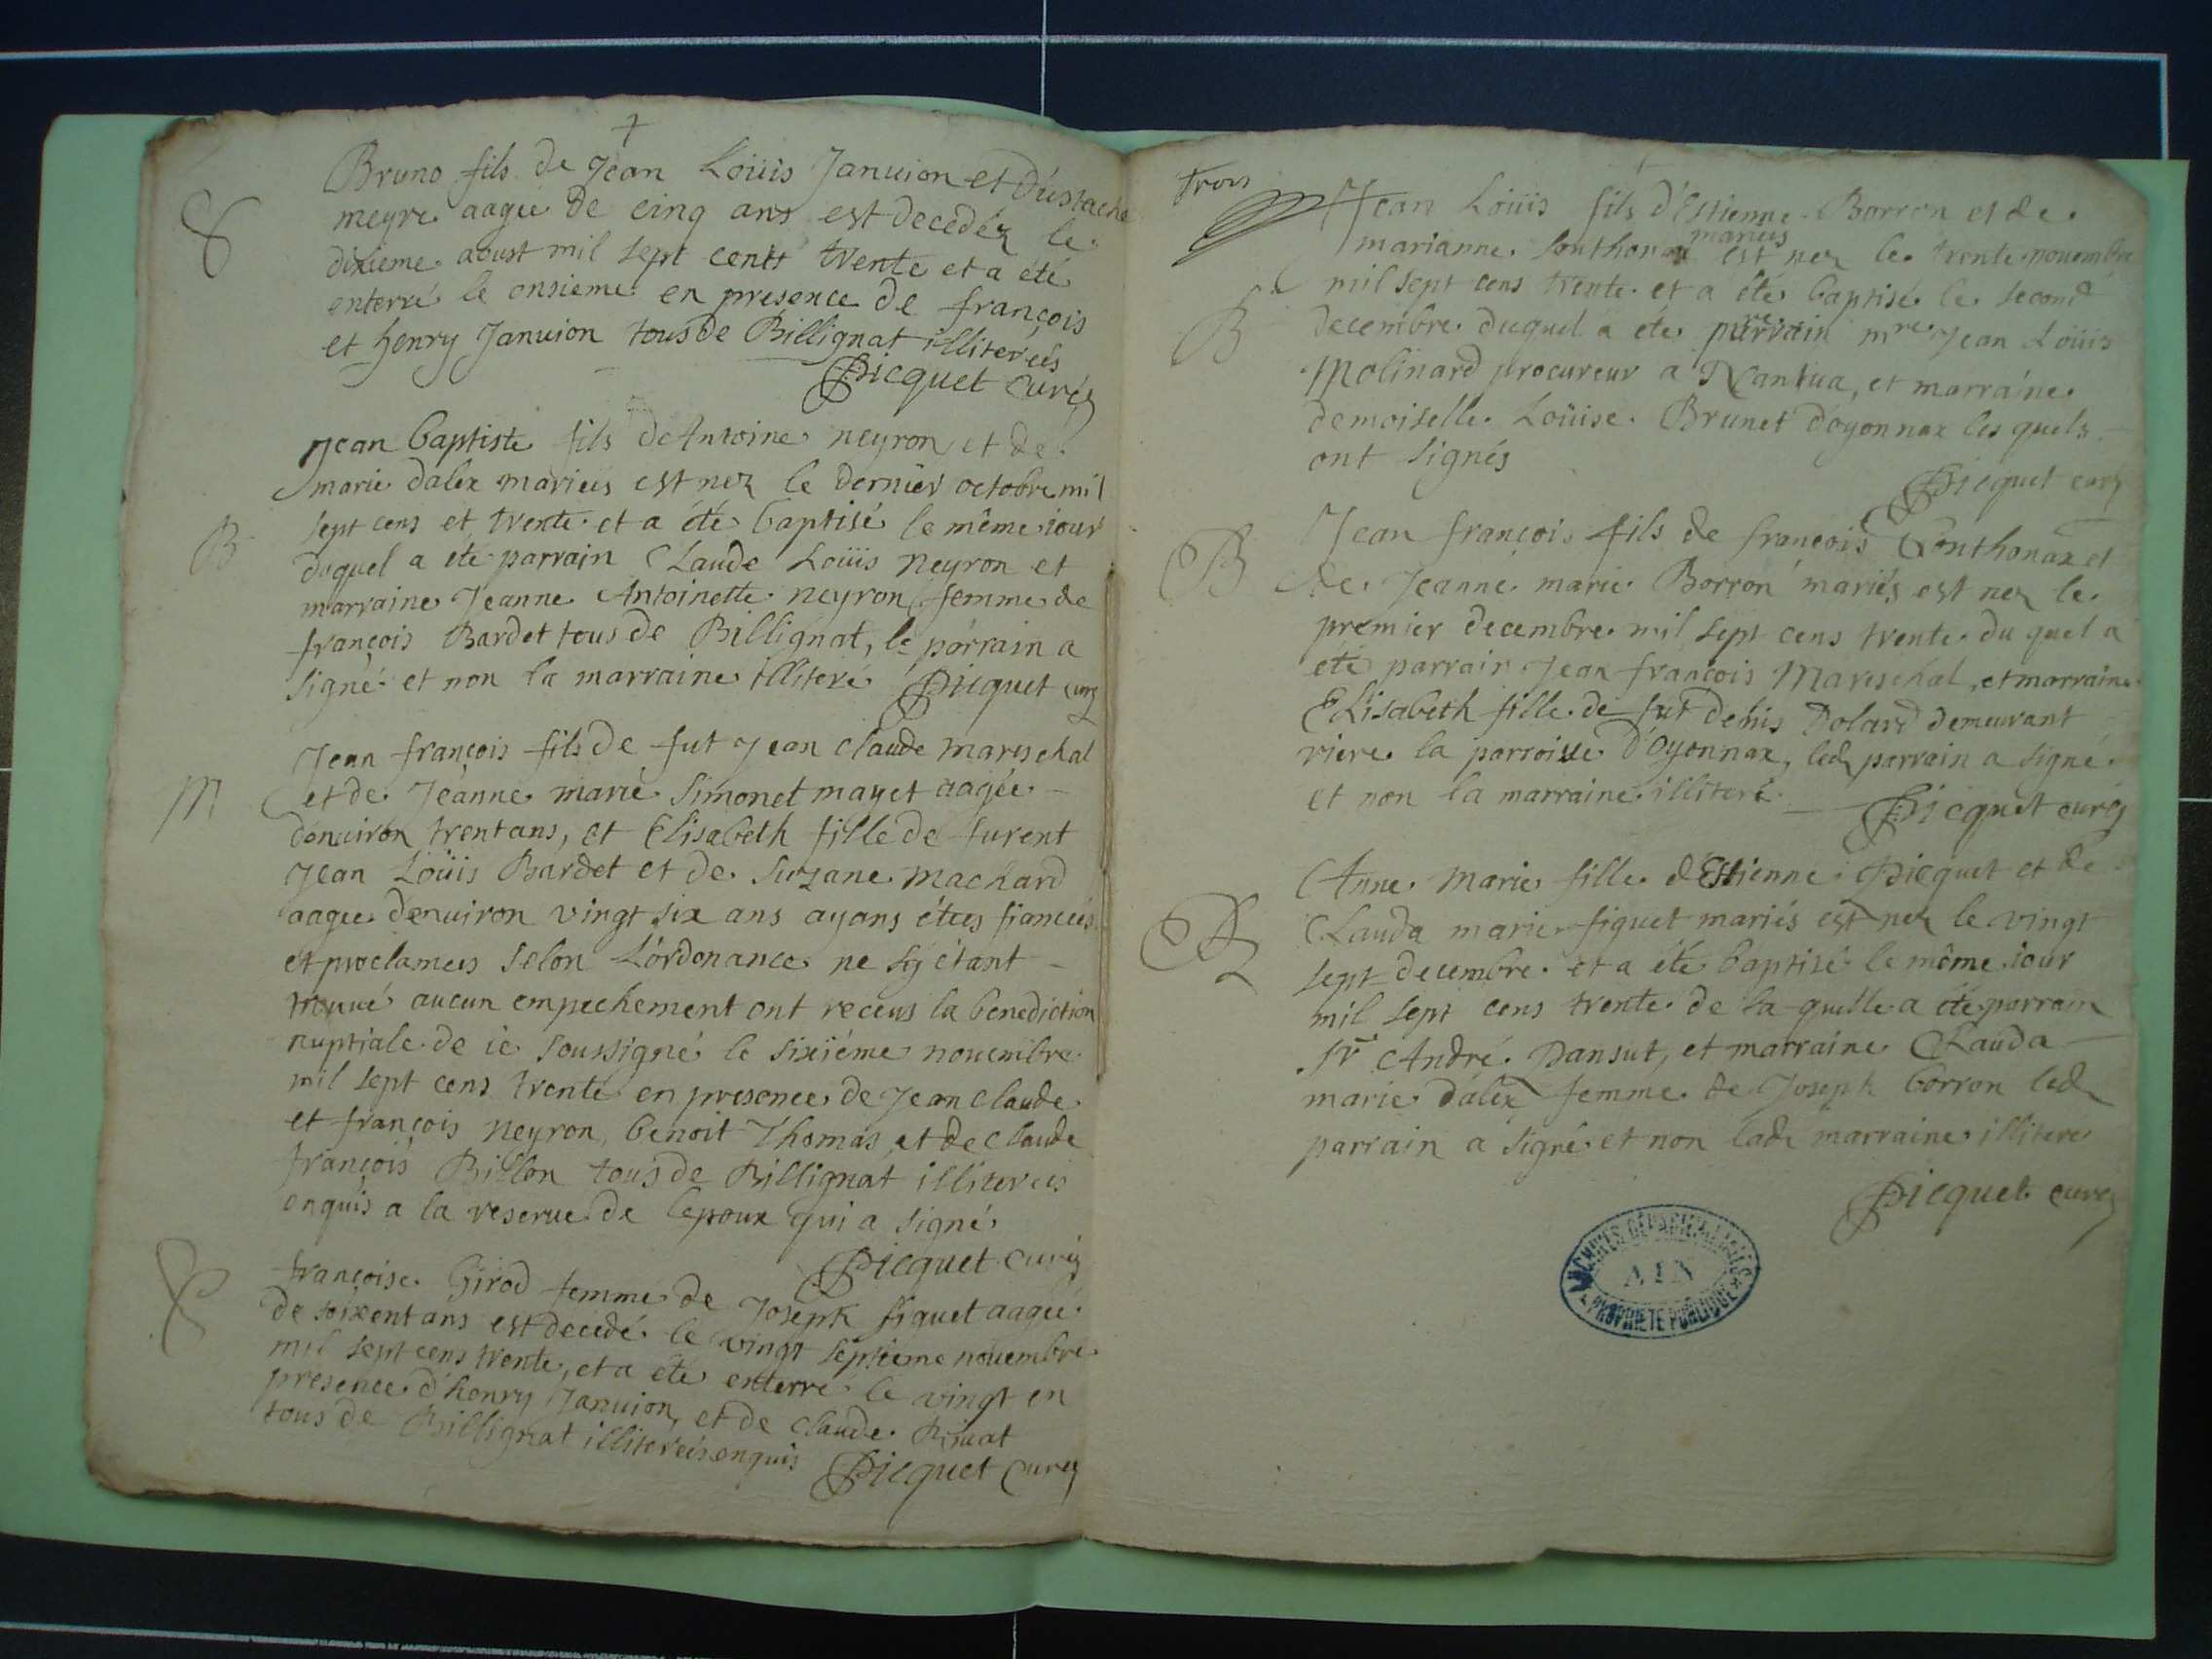 Bruno fils de Jean Loüis Januion et d'ustache
meyre aagée de cinq ans est decedéz le
dixieme aoust mil sept cents trente et a été
enterré le onsieme en presence de françois
et henry Januion tous de Billignat illiterées
Picquet curéz
Jean baptiste fils de Antoine neyron et de
marie dalex mariees est nez le dernier octobre mil
sept cens et trente et a été baptisé le même iour
B
duquel a été parrain Claude Loüis neyron et
marraine Jeanne Antoinette neyron femme de
françois Bardet tous de Billignat, le parrain a
signé et non la marraine illiteré Picquet curez
Jean françois fils de fut Jean claude mareschal
M
et de Jeanne marie Simonet mayet aagée
denuiron trent ans, et Elisabeth fille de furent
Jean Loüis Bardet et de Suzane machard
aagee denuiron vingt six ans ayans étees fiancées
et proclamees selon L'ordonance ne sÿ étant
trouué aucun empechement ont receus la benediction
nuptiale de ie soussigné le sixiéme nouembre
mil sept cens trente en presence de Jean claude
et françois neyron, benoit Thomas et de claude
françois Billon tous de Billignat illiterees
enquis a la reserue de lepoux qui a signé
Picquet curéz
françoise Girod femme de Joseph figuet aagée
de soixent ans est decedé le vingt septieme nouembre
mil sept cens trente, et a été enterré le vingt en
presence d'henry Januion, et de claude Riuat
tous de Billignat illiterées enquis Picquet curez
trois
Jean Loüis fils d'Estienne Borron et de
mariees
marianne Sonthonax est nez le trente nouembre
mil sept cens trente et a été baptisé le second
B
decembre duquel a été parrain mre Jean Loüis
Molinard procureur a Nantua, et marraine
demoiselle Loüise Brunet d'oyonnax les quels
ont signés
Picquet curez
Jean françois fils de françois Sonthonax et
B
de Jeanne marie Borron mariés est nez le
premier decembre mil sept cens trente du quel a
été parrain Jean françois Mareschal, et marraine
Elisabeth fille de fut denis Dolard demeurant
riere la parroisse d'Oyonnax, led parrain a signé
et non la marraine illiteré
Picquet curéz
Anne Marie fille d'Estienne Picquet et de
Clauda marie figuet mariés est nez le vingt
B
sept decembre et a été baptisé le même iour
mil sept cens trente de la quelle a été parrain
Sr André Dansut, et marraine Clauda
marie dalex femme de Joseph borron led
parrain a signé et non lade marraine illitere
Picquet curez
ARCHIVES DÉPARTEMENTALES
AIN
PROPRIÉTÉ PUBLIQUE